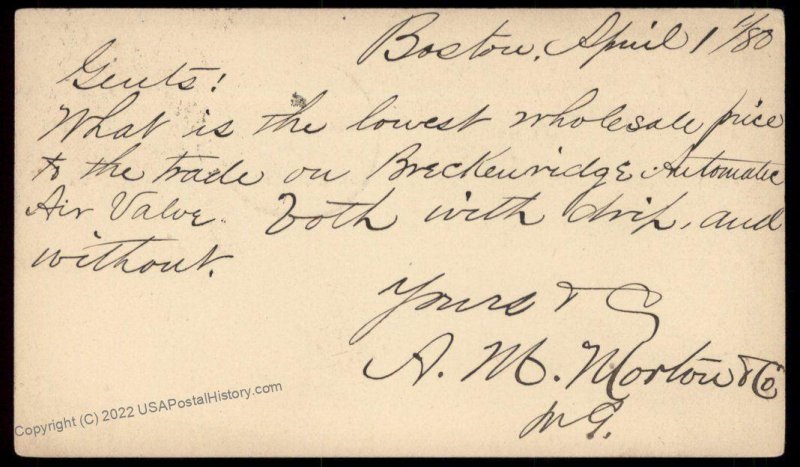 Boston, April 1/80
Gents!
What is the lowest wholesale price
to the trade on Breckenridge Automatic
Air Valve. both with drip, and
without.
Yours & C
A. M. Morton & Co.
Copyright (C) 2022 USAPostalHistory.com